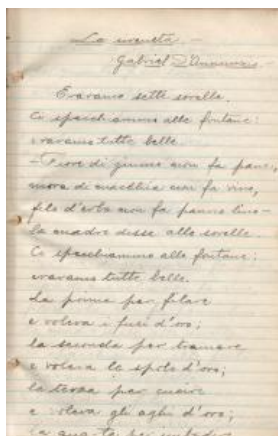 La sirenetta —
Gabriel D'Annunzio
Eravamo sette sorelle.
Ci specchiammo alle fontane:
eravamo tutte belle.
— Fiore di giunco non fa pane,
mora di macchia non fa vino,
filo d'erba non fa panno lino —
la madre disse alle sorelle
Ci specchiammo alle fontane;
eravamo tutte belle.
La prima per filare
e voleva i fusi d'oro;
la seconda per tramare
e voleva le spole d'oro;
la terza per cucire
e voleva gli aghi d'oro;
la quarta per imbandire